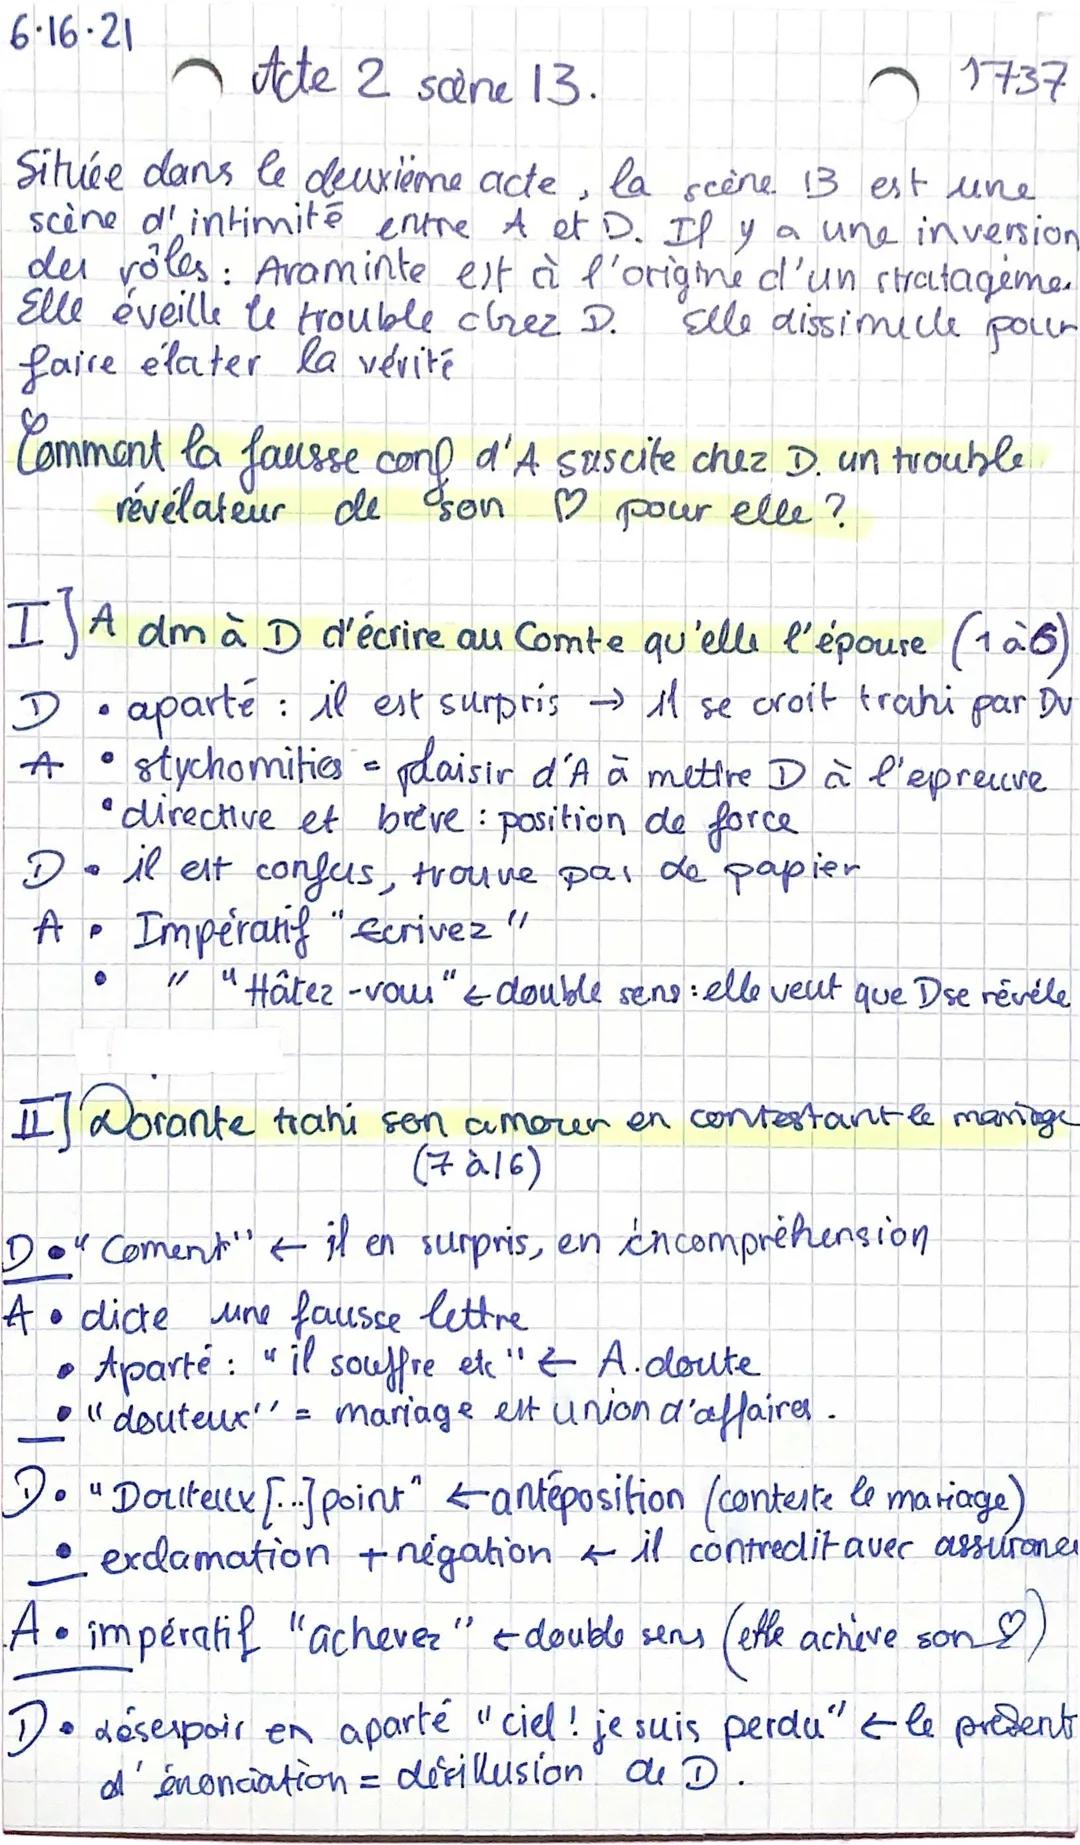 6.16.21
Acte 2 scène 13.
1737
Située dans le deuxième acte, la scène 13 est une
scène d'intimité entre A et D. Il y a une inversion
des rôles : Araminte est à l'origine d'un stratagème.
Elle éveille le trouble chez D. Elle dissimule pour
faire élater la vérité
Comment la fausse conf d'A suscite chez D. un trouble
révélateur de son ♡ pour elle ?
I] A dm à D d'écrire au Comte qu'elle l'épouse (1 à 6)
D • aparté : il est surpris → Il se croit trahi par Du
A • stychomities = plaisir d'A à mettre D à l'epreuve
• directive et brève : position de force
D • il est confus, trouve pas de papier
A • Impératif "Ecrivez"
• " "Hâtez-vous" ← double sens : elle veut que D se révèle
II] Dorante trahi son amour en contestant le mariage
(7 à 16)
D • "Coment" ← il en surpris, en incompréhension
A • dicte une fausse lettre
• Aparté : "il souffre etc" ← A. doute
• "douteux" = mariage est union d'affaires.
D • "Douteux [...] point" ← antéposition (conteste le mariage)
• exclamation + négation ← il contredit avec assurance
A • impératif "achevez" ← double sens (elle achève son ♡)
D • désespoir en aparté "ciel ! je suis perdu" ← le présent
d'énonciation = désillusion de D.